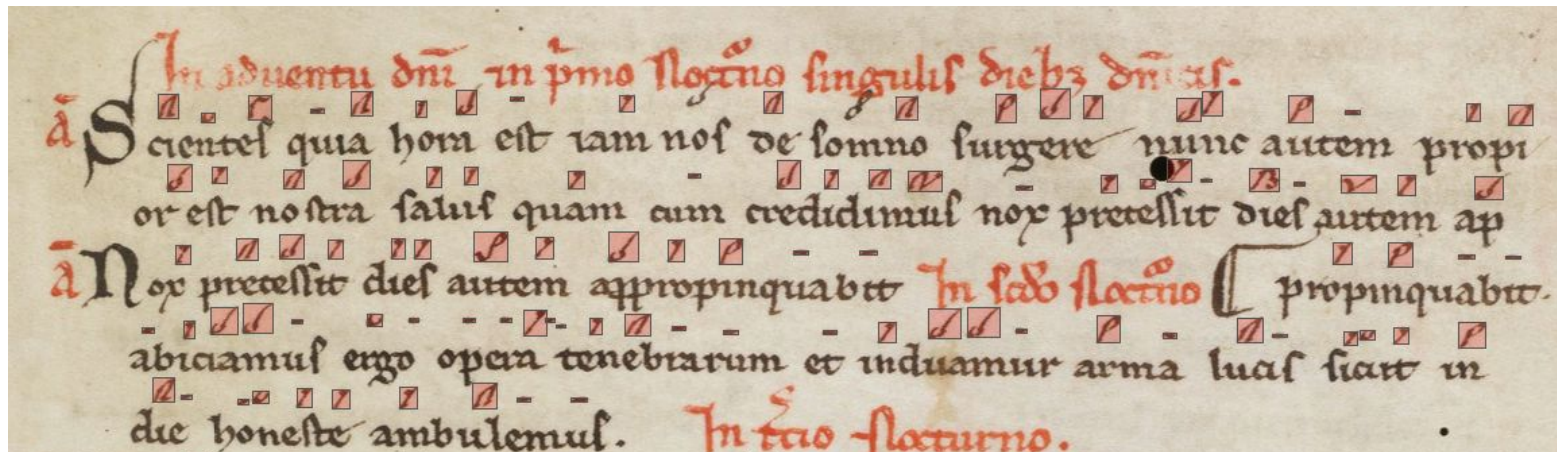 In aduentu dñi in p̃mo Noct̃no singulis dieb; dñicis.
ā Scientes quia hora est iam nos de somno surgere nunc autem propi
or est nostra salus quam cum credidimus nox precessit dies autem ap
ā Nox precessit dies autem appropinquabit In scdo Noct̃no propinquabit.
abiciamus ergo opera tenebrarum et induamur arma lucis sicut in
die honeste ambulemus. In t̃cio Nocturno.